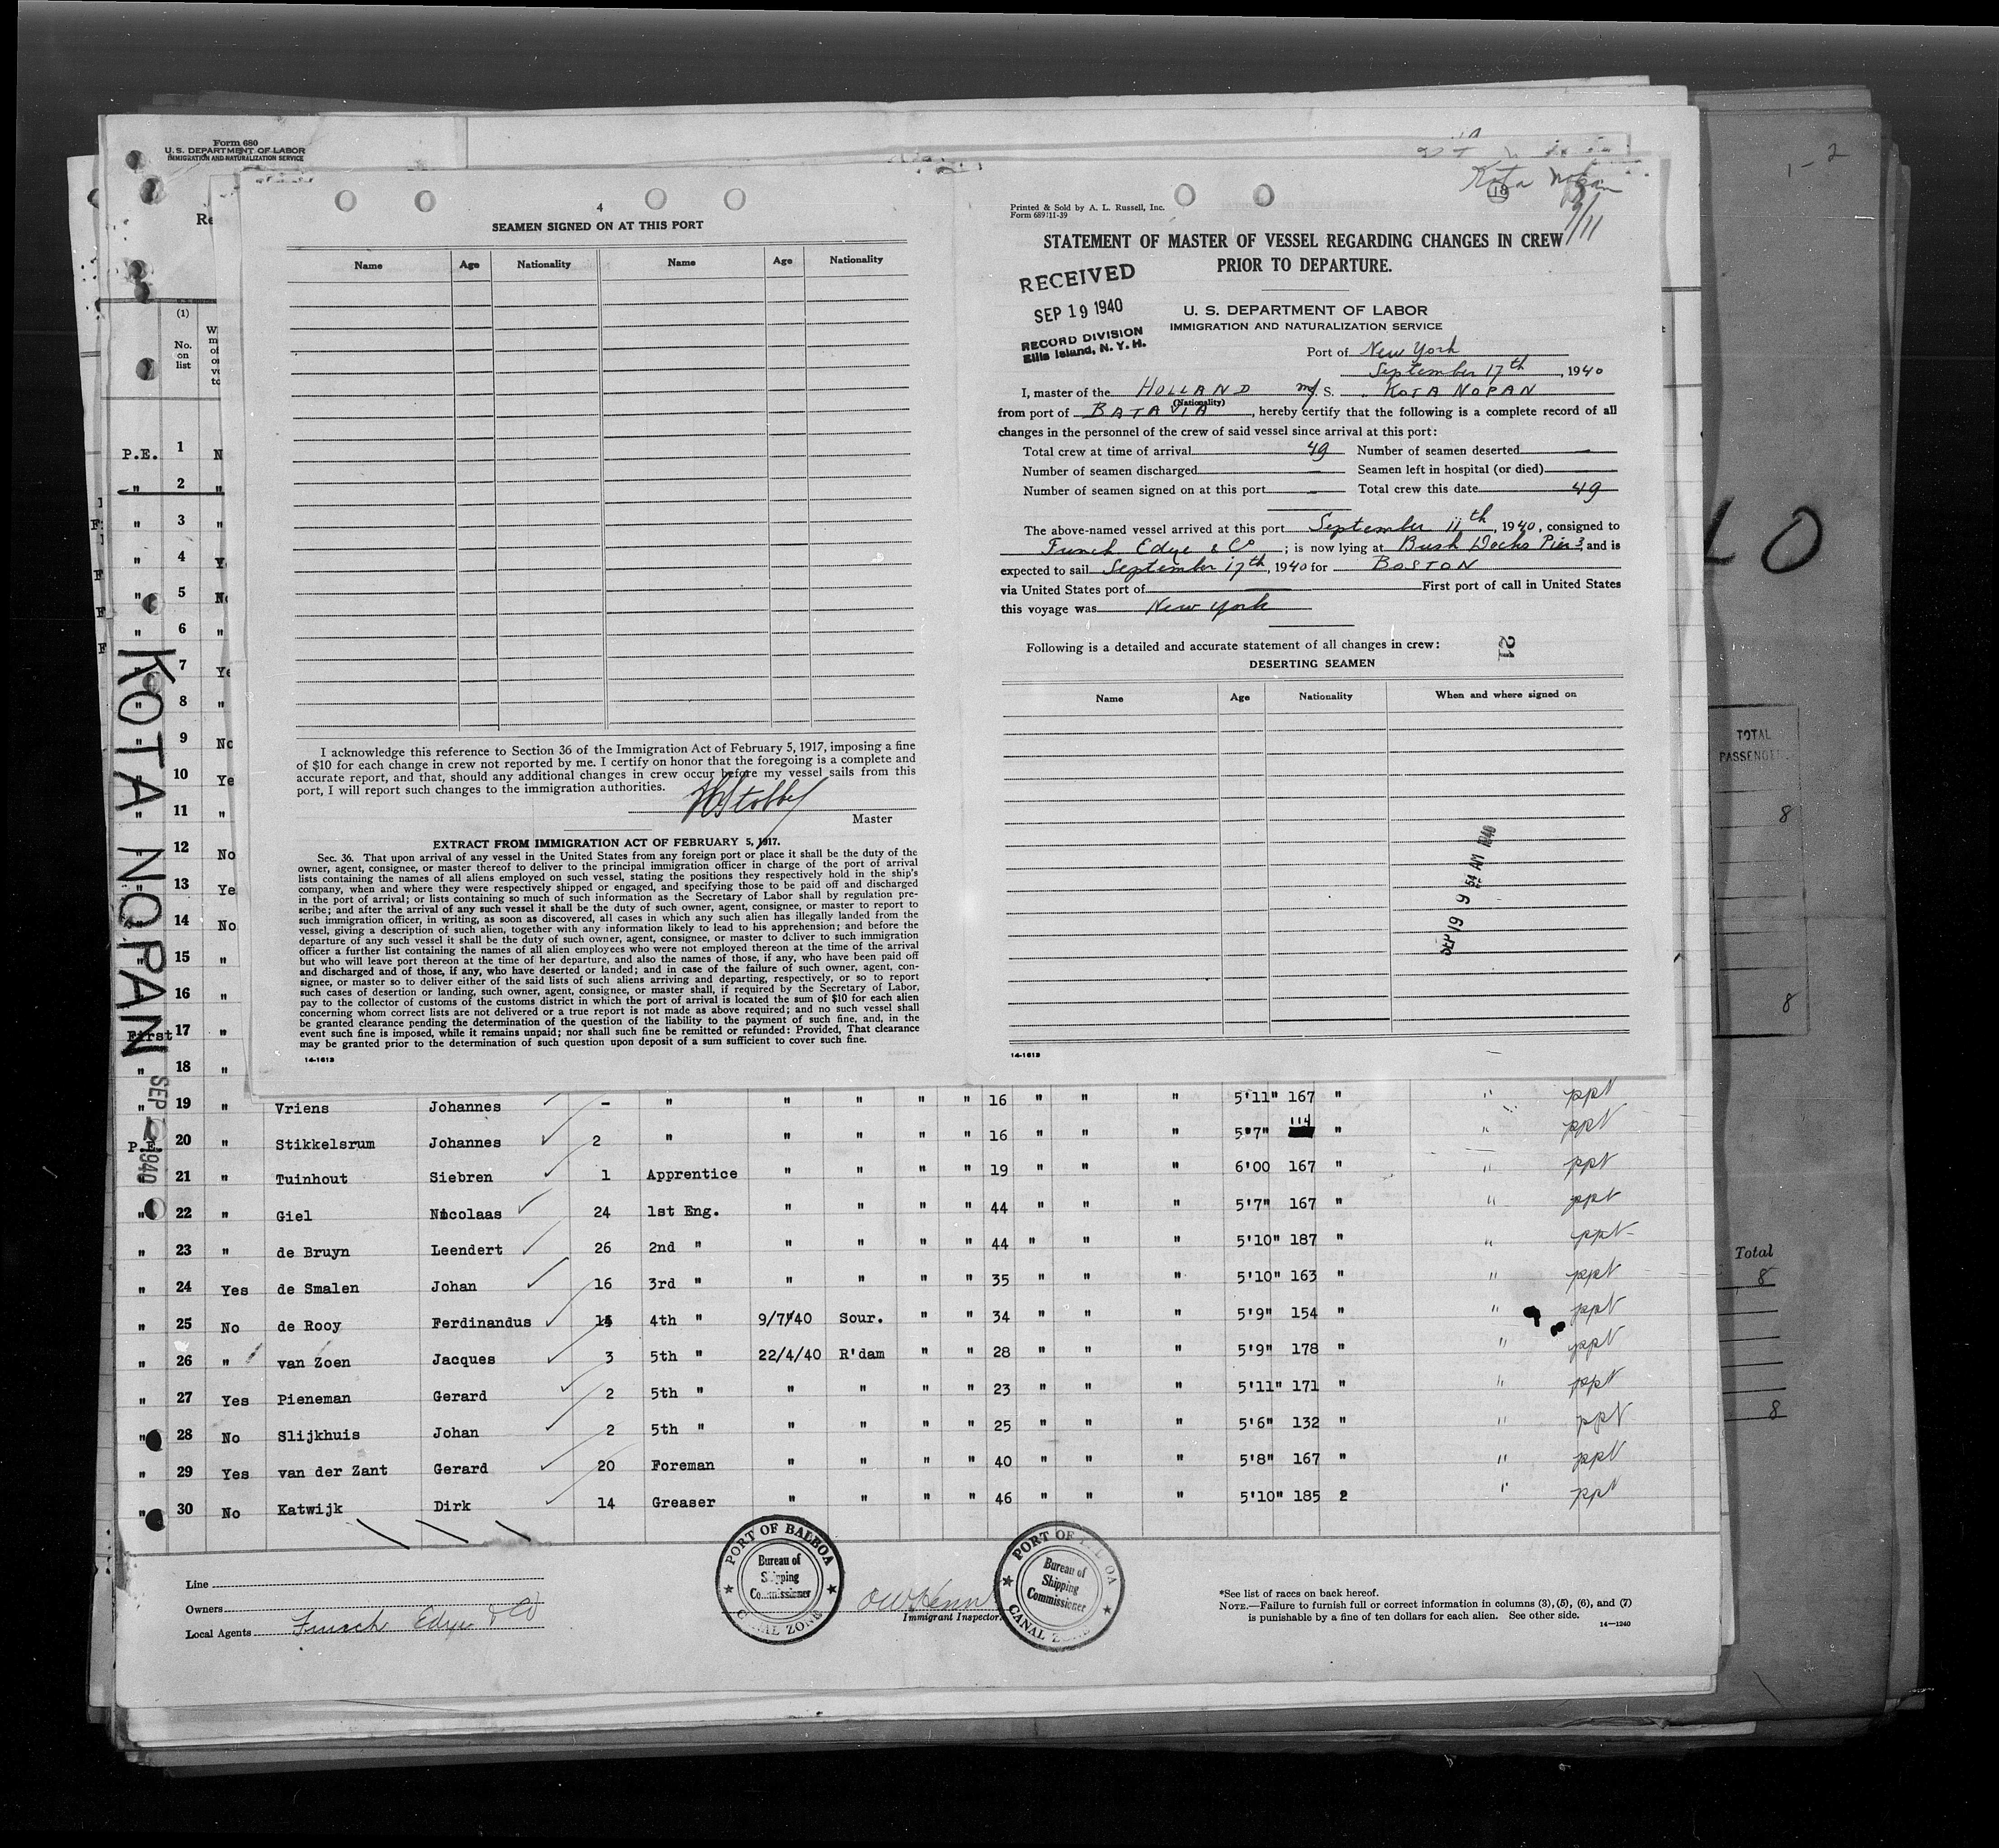 Form 680
U. S. DEPARTMENT OF LABOR
IMMIGRATION AND NATURALIZATION SERVICE
4
SEAMEN SIGNED ON AT THIS PORT
Name Age Nationality Name Age Nationality
I acknowledge this reference to Section 36 of the Immigration Act of February 5, 1917, imposing a fine
of $10 for each change in crew not reported by me. I certify on honor that the foregoing is a complete and
accurate report, and that, should any additional changes in crew occur before my vessel sails from this
port, I will report such changes to the immigration authorities.
Master
EXTRACT FROM IMMIGRATION ACT OF FEBRUARY 5, 1917.
Sec. 36. That upon arrival of any vessel in the United States from any foreign port or place it shall be the duty of the
owner, agent, consignee, or master thereof to deliver to the principal immigration officer in charge of the port of arrival
lists containing the names of all aliens employed on such vessel, stating the positions they respectively hold in the ship's
company, when and where they were respectively shipped or engaged, and specifying those to be paid off and discharged
in the port of arrival; or lists containing so much of such information as the Secretary of Labor shall by regulation pre-
scribe; and after the arrival of any such vessel it shall be the duty of such owner, agent, consignee, or master to report to
such immigration officer, in writing, as soon as discovered, all cases in which any such alien has illegally landed from the
vessel, giving a description of such alien, together with any information likely to lead to his apprehension; and before the
departure of any such vessel it shall be the duty of such owner, agent, consignee, or master to deliver to such immigration
officer a further list containing the names of all alien employees who were not employed thereon at the time of the arrival
but who will leave port thereon at the time of her departure, and also the names of those, if any, who have been paid off
and discharged and of those, if any, who have deserted or landed; and in case of the failure of such owner, agent, con-
signee, or master so to deliver either of the said lists of such aliens arriving and departing, respectively, or so to report
such cases of desertion or landing, such owner, agent, consignee, or master shall, if required by the Secretary of Labor,
pay to the collector of customs of the customs district in which the port of arrival is located the sum of $10 for each alien
concerning whom correct lists are not delivered or a true report is not made as above required; and no such vessel shall
be granted clearance pending the determination of the question of the liability to the payment of such fine, and, in the
event such fine is imposed, while it remains unpaid; nor shall such fine be remitted or refunded: Provided, That clearance
may be granted prior to the determination of such question upon deposit of a sum sufficient to cover such fine.
14-1613
Kota Nopan
18
9/11
Printed & Sold by A. L. Russell, Inc.
Form 689:11-39
STATEMENT OF MASTER OF VESSEL REGARDING CHANGES IN CREW
PRIOR TO DEPARTURE.
RECEIVED
SEP 19 1940
RECORD DIVISION
Ellis Island, N. Y. H.
U. S. DEPARTMENT OF LABOR
IMMIGRATION AND NATURALIZATION SERVICE
Port of New York
September 17th, 1940
I, master of the HOLLAND m/. S. KOTA NOPAN
(Nationality)
from port of BATAVIA, hereby certify that the following is a complete record of all
changes in the personnel of the crew of said vessel since arrival at this port:
Total crew at time of arrival 49 Number of seamen deserted —
Number of seamen discharged — Seamen left in hospital (or died) —
Number of seamen signed on at this port — Total crew this date 49
The above-named vessel arrived at this port September 11th, 1940, consigned to
Funch Edye & Co; is now lying at Bush Docks Pier 3, and is
expected to sail September 17th, 1940 for BOSTON
via United States port of — First port of call in United States
this voyage was New York
Following is a detailed and accurate statement of all changes in crew:
21
DESERTING SEAMEN
Name Age Nationality When and where signed on
SEP 19 9 54 AM 1940
14-1613
(1)
No.
on
list
P.E. 1 N
" 2 "
" 3 "
" 4 Y
" 5 No
" 6 "
" 7 Ye
" 8 "
" 9 No
" 10 Ye
" 11 "
" 12 No
" 13 Ye
" 14 No
" 15 "
" 16 "
First 17 "
" 18 "
KOTA NOPAN
SEP 1940
" 19 " Vriens Johannes - " " " " " 16 " " " 5'11" 167 " " ppt
P.E. 20 " Stikkelsrum Johannes 2 " " " " " 16 " " " 5'7" 114 " " ppt
" 21 " Tuinhout Siebren 1 Apprentice " " " " 19 " " " 6'00 167 " " ppt
" 22 " Giel Nicolaas 24 1st Eng. " " " " 44 " " " 5'7" 167 " " ppt
" 23 " de Bruyn Leendert 26 2nd " " " " " 44 " " " 5'10" 187 " " ppt
" 24 Yes de Smalen Johan 16 3rd " " " " " 35 " " " 5'10" 163 " " ppt
" 25 No de Rooy Ferdinandus 15 4th " 9/7/40 Sour. " " 34 " " " 5'9" 154 " " ppt
" 26 " van Zoen Jacques 3 5th " 22/4/40 R'dam " " 28 " " " 5'9" 178 " " ppt
" 27 Yes Pieneman Gerard 2 5th " " " " " 23 " " " 5'11" 171 " " ppt
" 28 No Slijkhuis Johan 2 5th " " " " " 25 " " " 5'6" 132 " " ppt
" 29 Yes van der Zant Gerard 20 Foreman " " " " 40 " " " 5'8" 167 " " ppt
" 30 No Katwijk Dirk 14 Greaser " " " " 46 " " " 5'10" 185 2 " ppt
Line
Owners
Local Agents Funch Edye & Co
PORT OF BALBOA
Bureau of
Shipping
Commissioner
CANAL ZONE
Immigrant Inspector.
PORT OF
Bureau of
Shipping
Commissioner
CANAL
*See list of races on back hereof.
NOTE.—Failure to furnish full or correct information in columns (3), (5), (6), and (7)
is punishable by a fine of ten dollars for each alien. See other side.
14—1240
1-2
LO
TOTAL
PASSENGER
8
8
Total
8
8